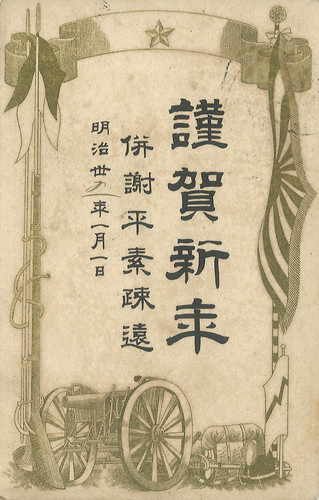 謹賀新年
併謝平素疎遠
明治丗年一月一日